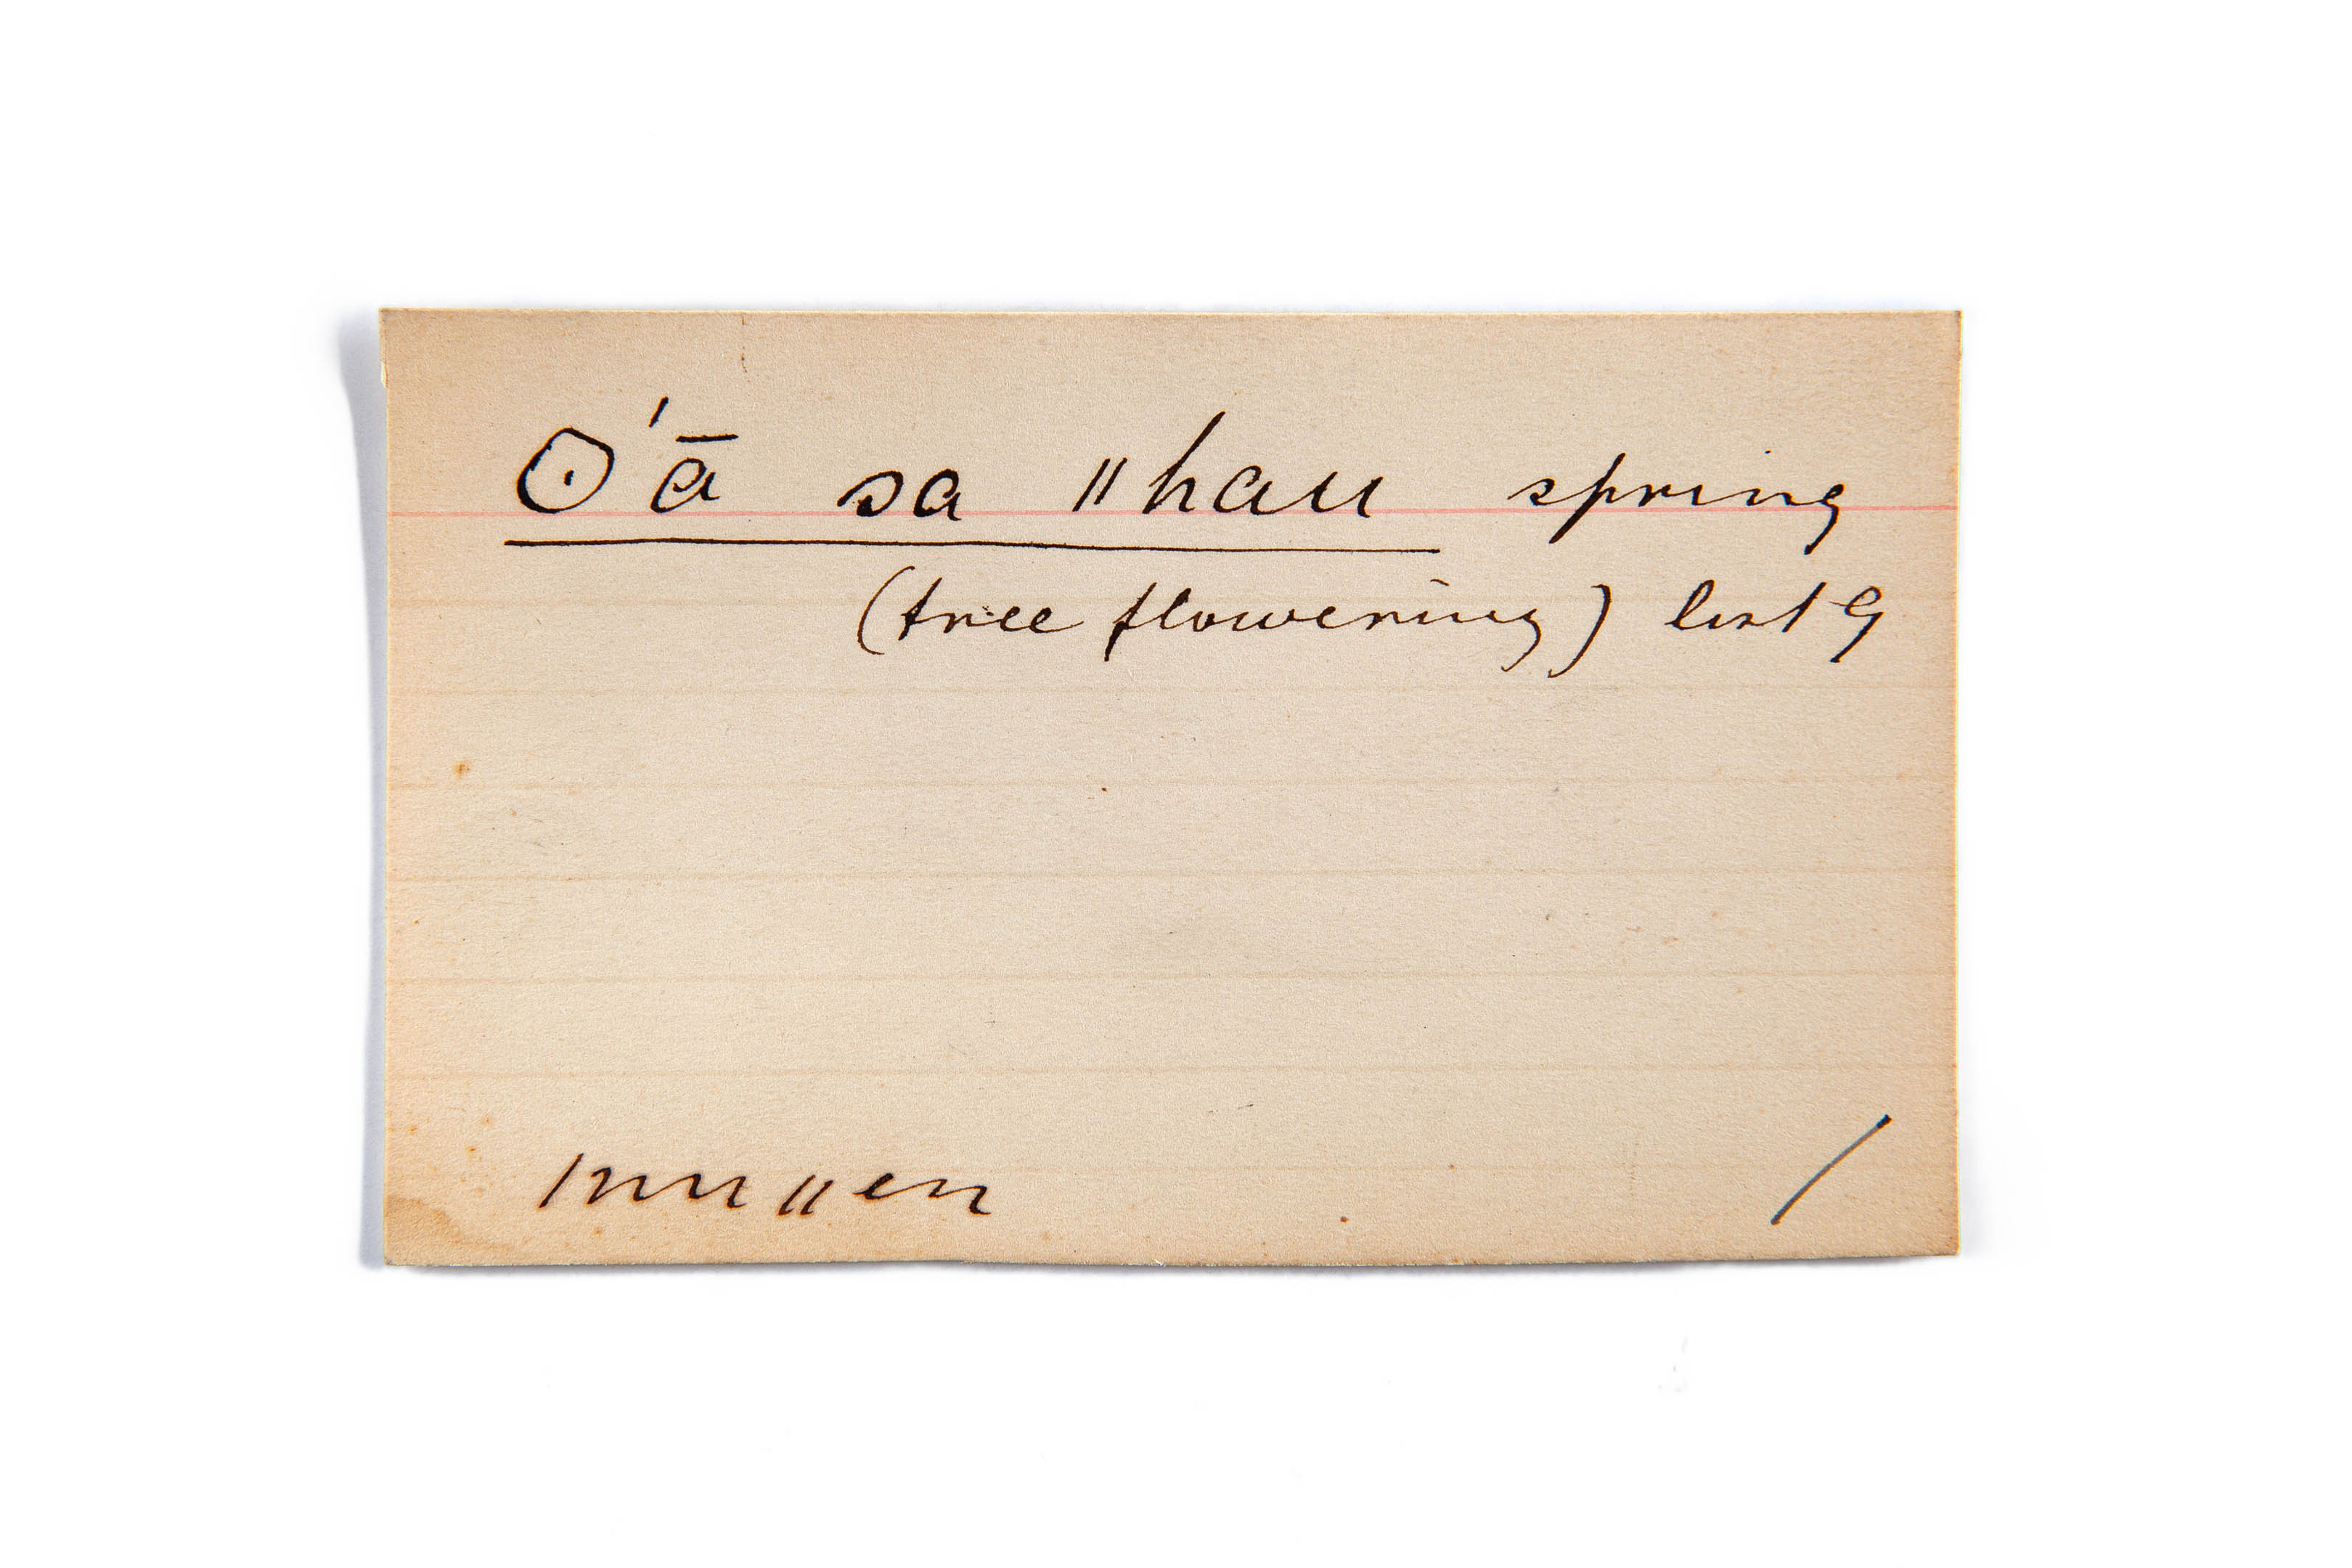 ʘ'ā sa ǁhau spring
(tree flowering) list 9
/nu ǁen
/